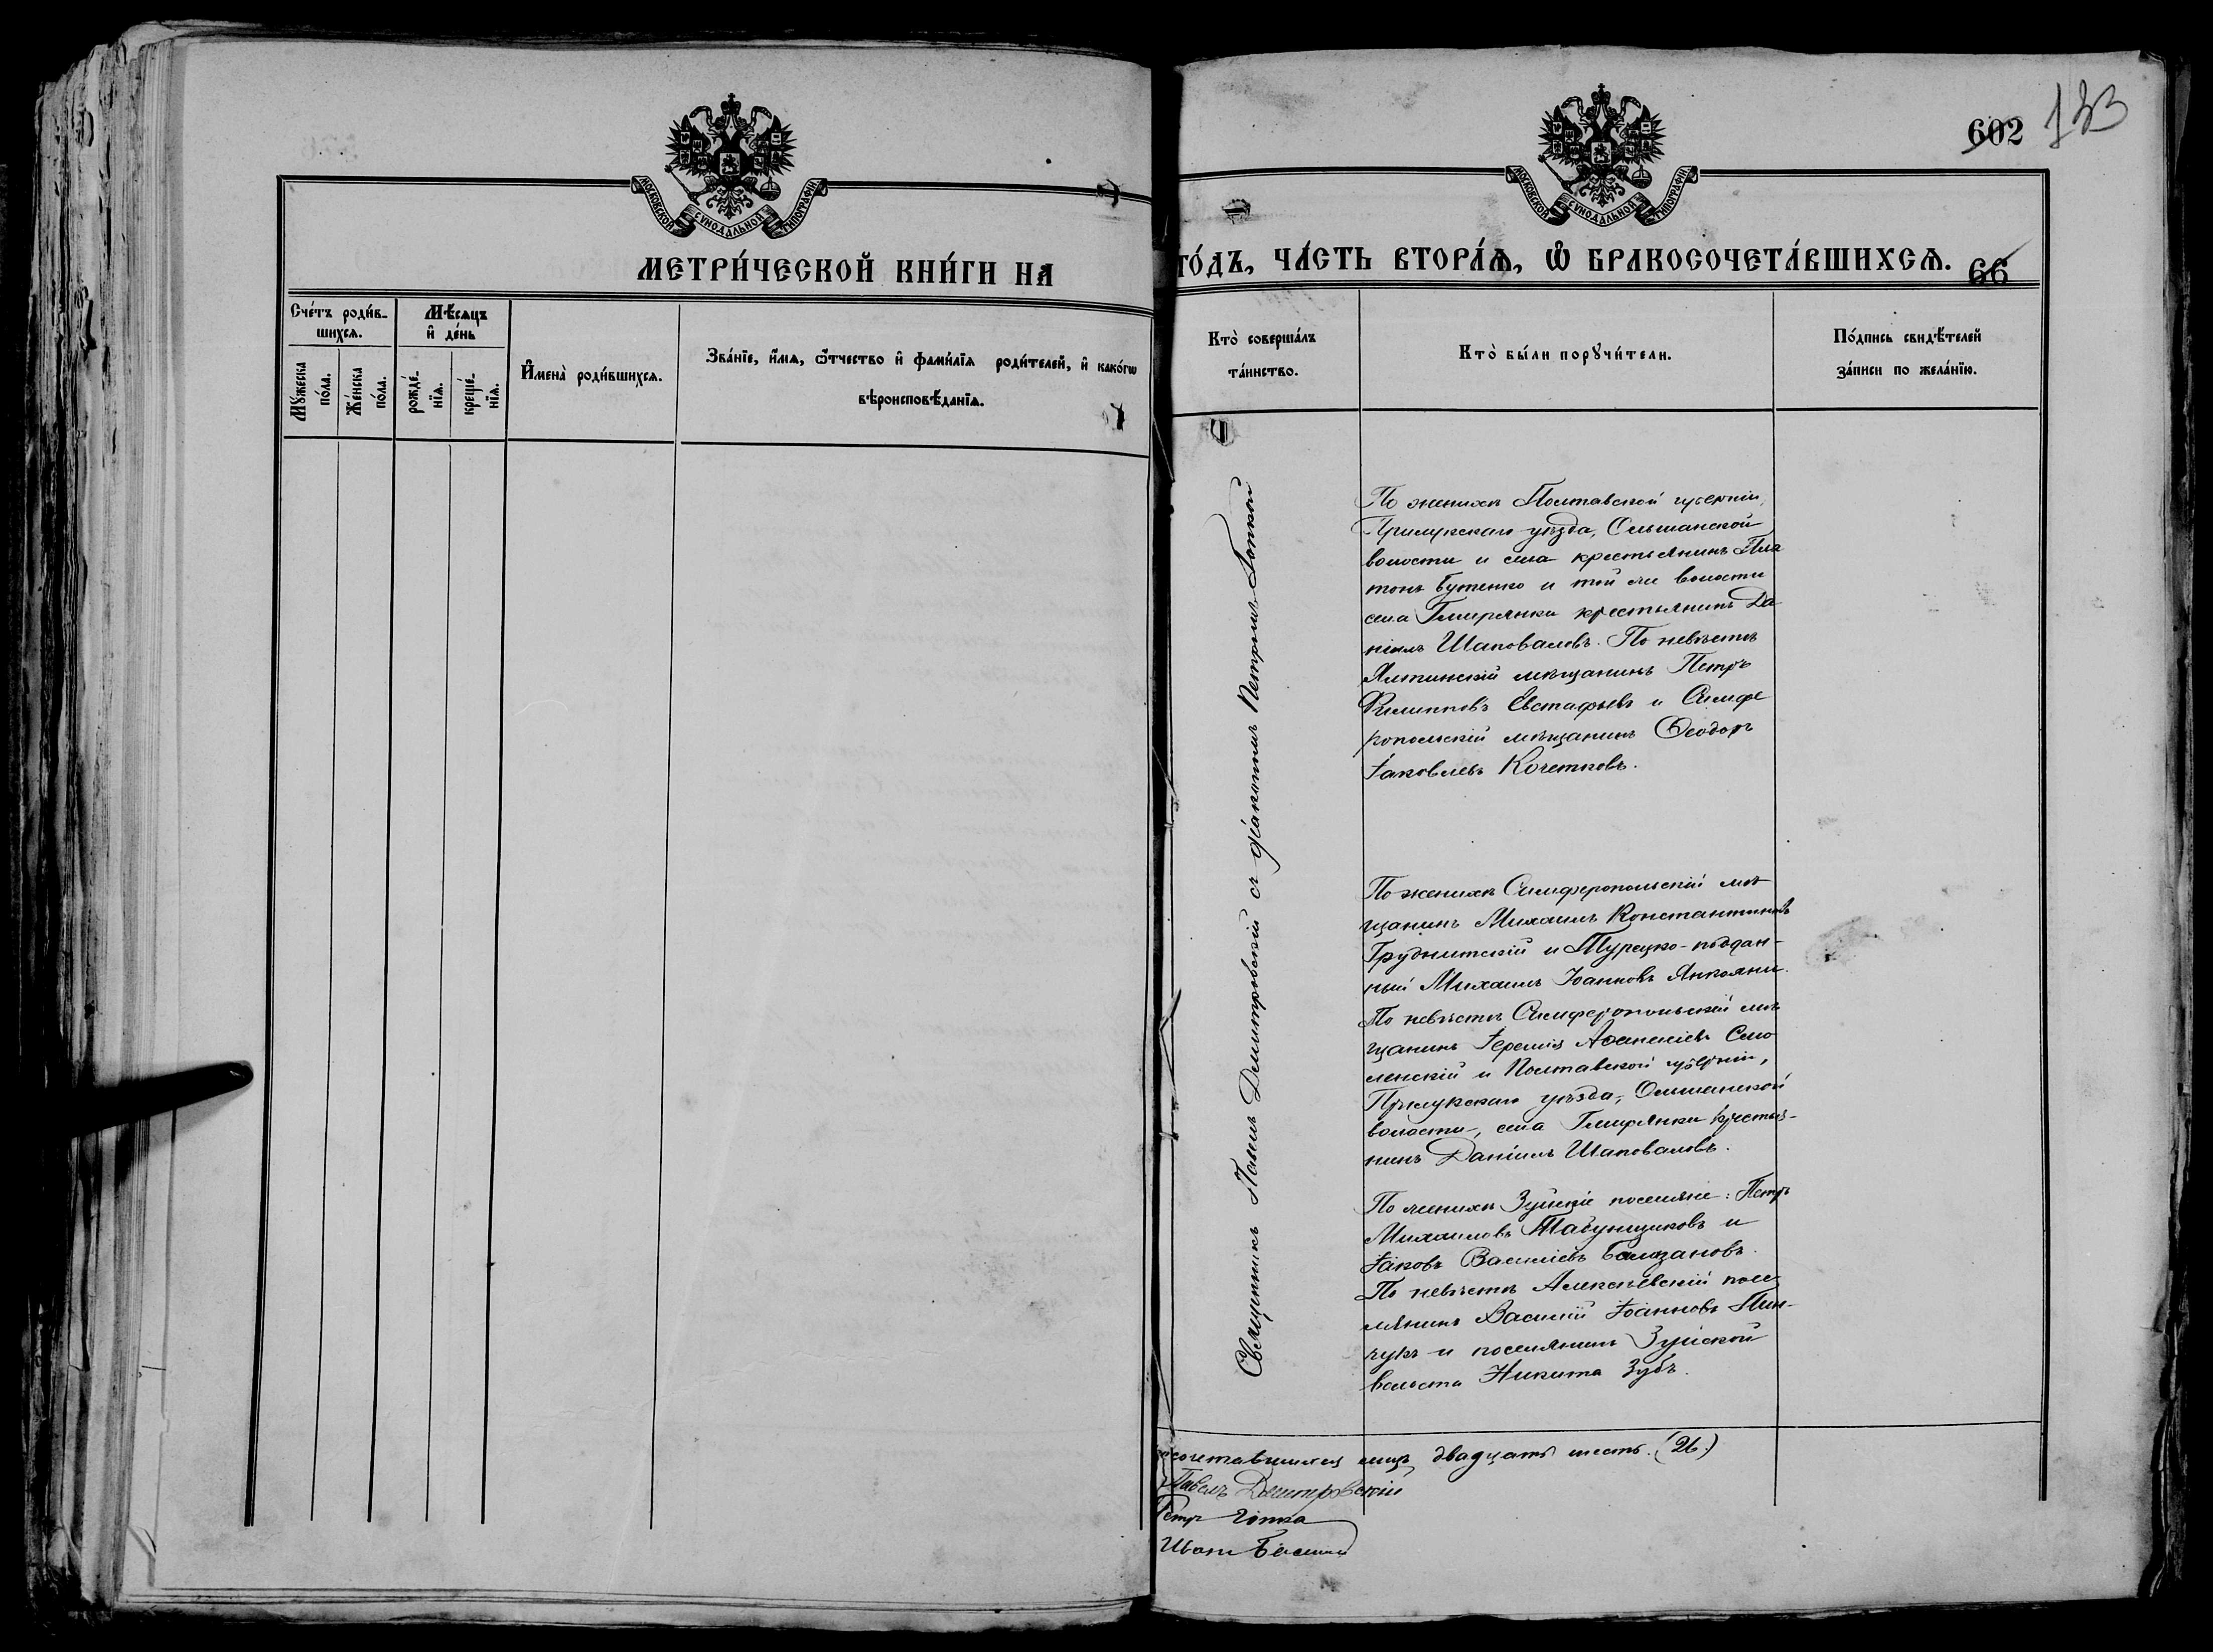 МОСКОВСКОЙ СУНОДАЛЬНОЙ ТИПОГРАФІИ
МЕТРИ́ЧЕСКОЙ КНИ́ГИ НА
Сче́тъ роди́в-
шихся.
Мѣ́сяцъ
и҆ де́нь
Мꙋ́жеска
по́ла.
Же́нска
по́ла.
рожде́-
нїѧ.
креще́-
нїѧ.
И҆мена̀ роди́вшихсѧ.
Зва́нїе, и҆́мѧ, ѻ҆́тчество и҆ фами́лїѧ роди́телей, и҆ како́гѡ
вѣроисповѣ́данїѧ.
602 133
МОСКОВСКОЙ СУНОДАЛЬНОЙ ТИПОГРАФІИ
ГО́ДЪ, ЧА́СТЬ ВТОРА́Ѧ, Ѡ҆ БРАКОСОЧЕТА́ВШИХСѦ. 66
Кто̀ соверша́лъ
та́инство.
Кто̀ бы́ли порꙋчи́тели.
По́дпись свидѣ́телей
за́писи по жела́нїю.
Священникъ Павелъ Димитровскій съ діакономъ Петромъ Гопкой
По женихѣ Полтавской губерніи,
Прилукскаго уѣзда, Ольшанской
волости и села крестьянинъ Пла
тонъ Бутенко и той же волости
села Гмирянки крестьянинъ Да
ніилъ Шаповаловъ. По невѣстѣ
Ялтинскій мѣщанинъ Петръ
Филипповъ Евстафьевъ и Симфе
ропольскій мѣщанинъ Ѳеодоръ
Іаковлевъ Кочетковъ.
По женихѣ Симферопольскій мѣ
щанинъ Михаилъ Константиновъ
Грудницкій и Турецко-поддан-
ный Михаилъ Іоанновъ
По невѣстѣ Симферопольскій мѣ
щанинъ Іеремія Аѳанасіевъ Смо
ленскій и Полтавской губерніи,
Прилукскаго уѣзда, Ольшанской
волости, села Гмирянки крестья-
нинъ Даніилъ Шаповаловъ.
По женихѣ Зуйскіе поселяне: Петръ
Михаиловъ Табунщиковъ и
Іаковъ Василіевъ Балазановъ.
По невѣстѣ Алексѣевскій посе
лянинъ Василій Іоанновъ Пин-
чукъ и поселянинъ Зуйской
волости Никита Зубъ.
сочетавшихся лицъ двадцать шесть. (26.)
Павелъ Димитровскій
Петръ Гопка
Иванъ